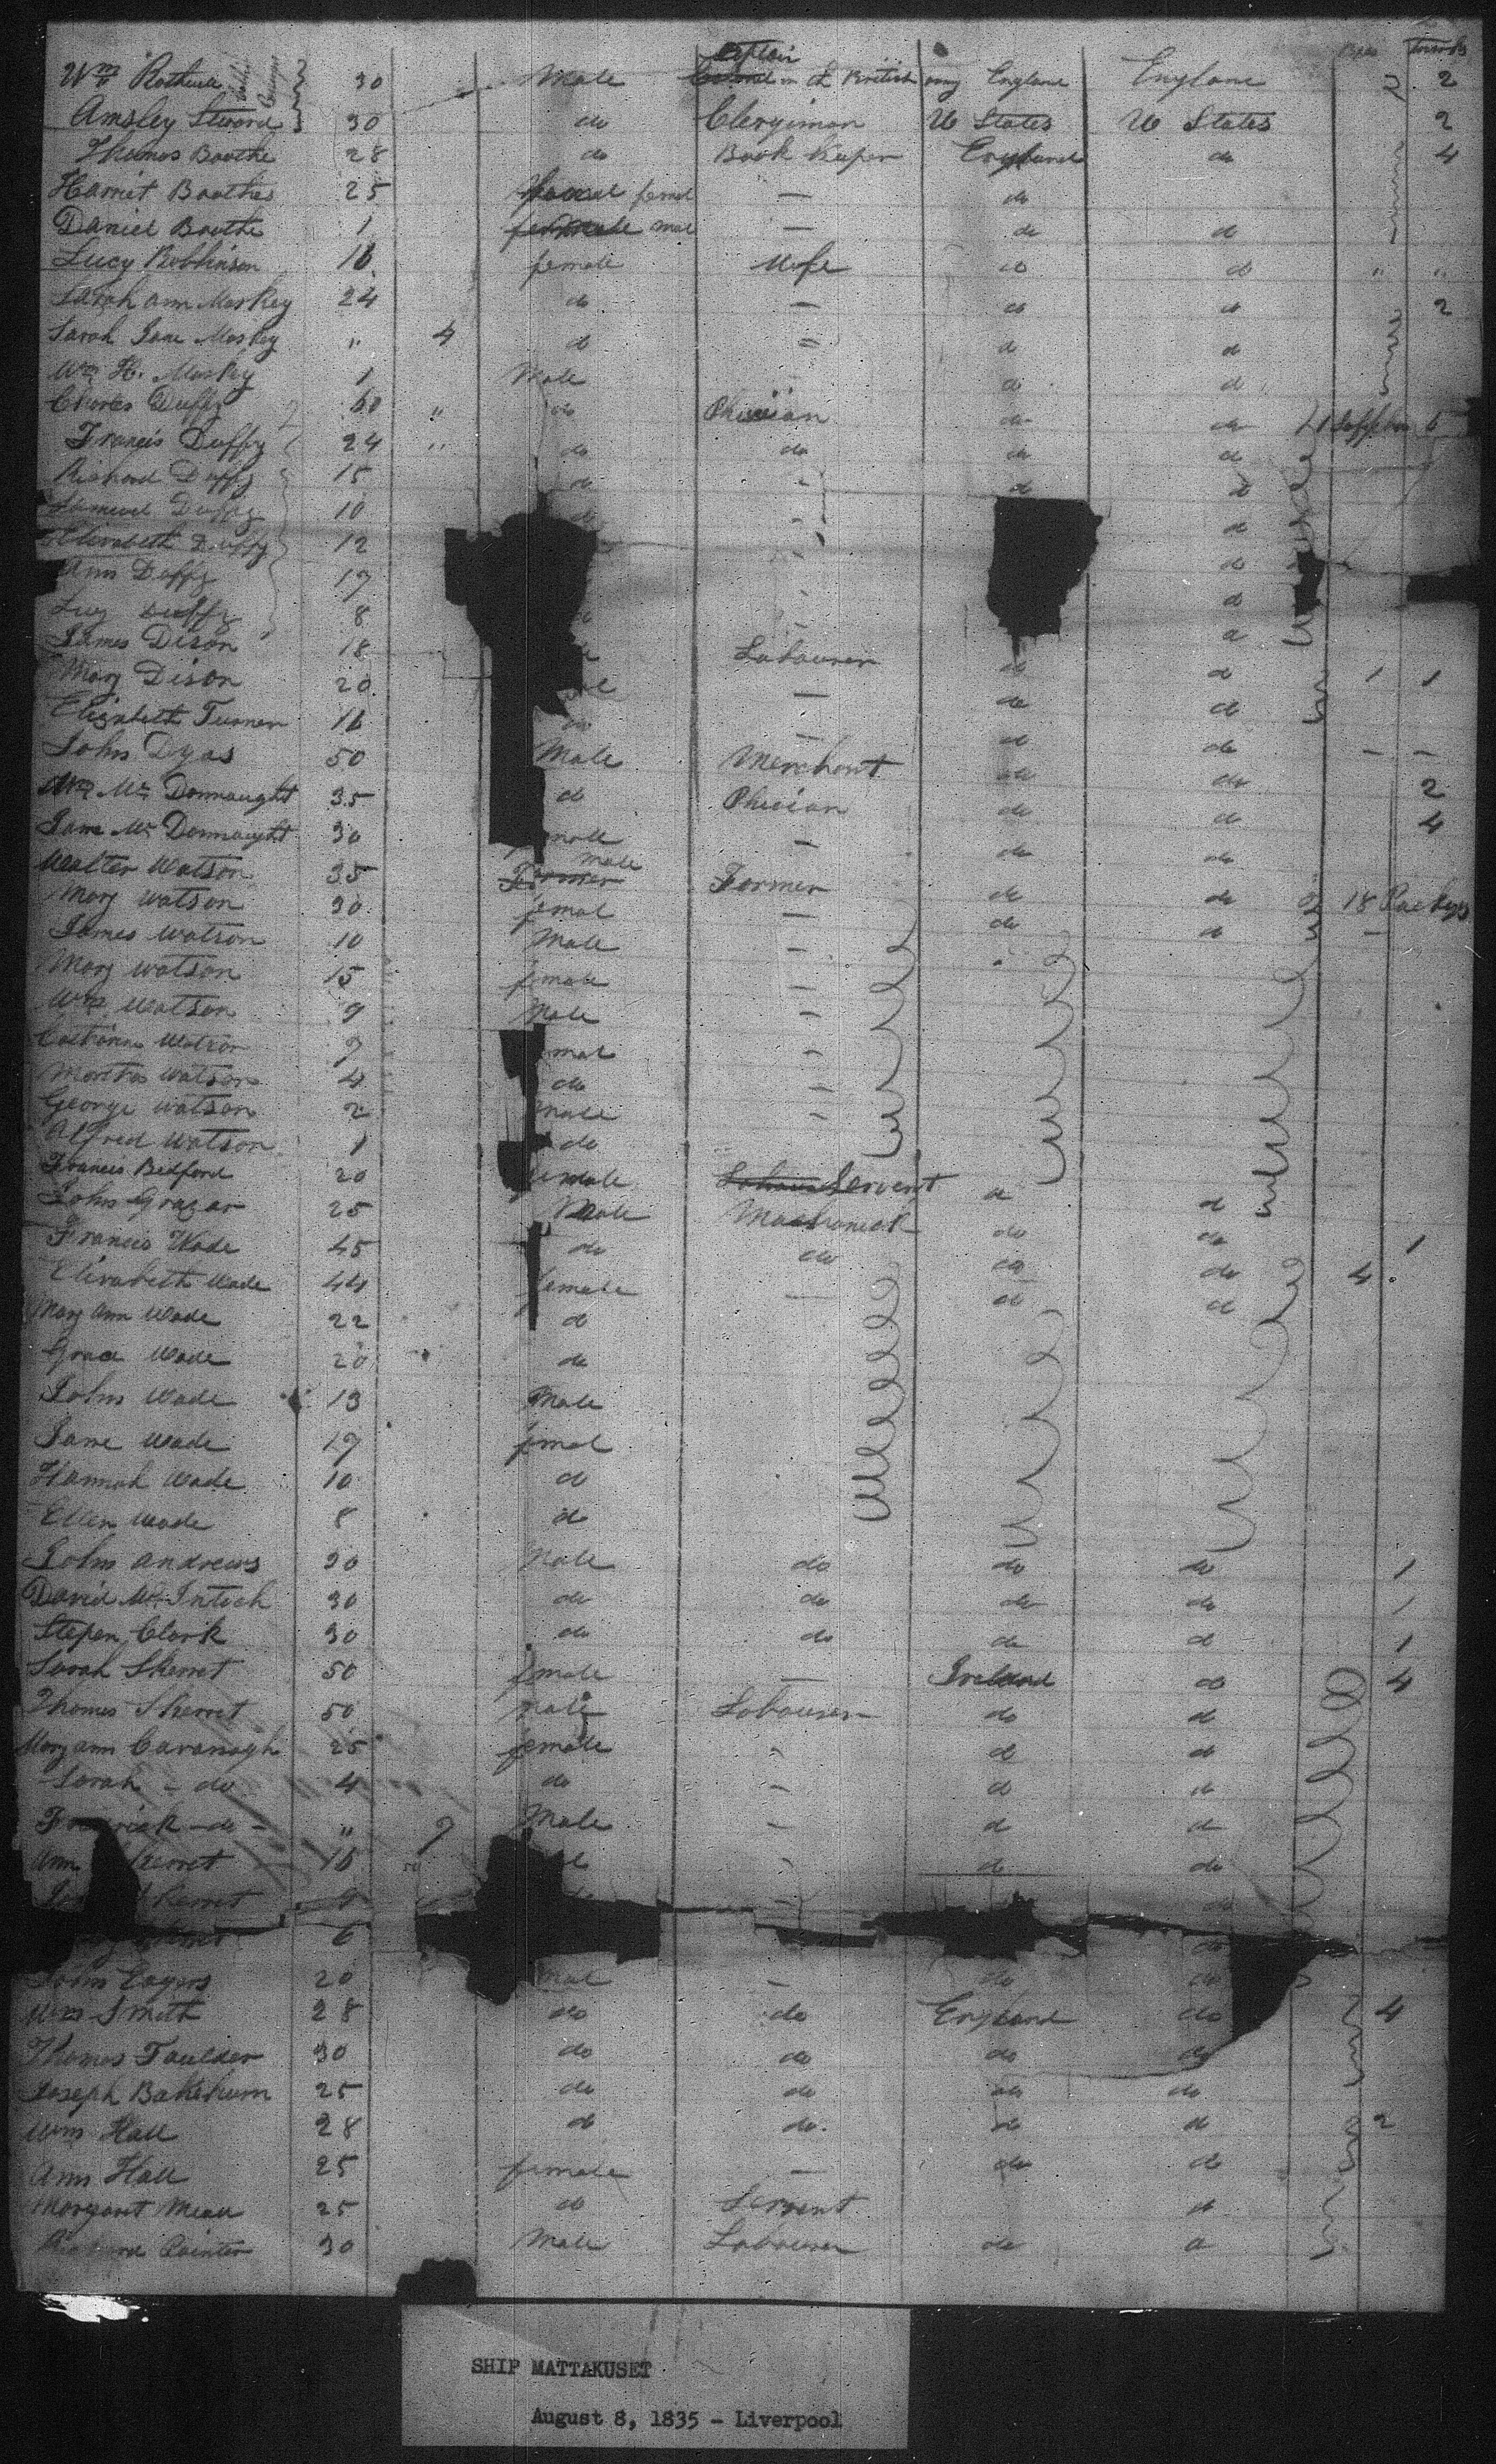 Boxes Trunks
Captain
Wm 30 Male in the British army England Englane 2 2
Cabbin Passengers
Amsley Steward 30 do Clergiman U States U States 2
Thomas Boothe 28 do Book Keeper England do 4
Harriet Boothe 25 femal — do
Daniel Boothe 1 male — do d
Lucy Robbinson 16 female do d " "
Sarah ann Moskey 24 do — do d 2
Sarah Jane Moskey " 4 d — d d
Wm H. Moskey 1 Male d d
Charles Duffy 60 " do Phisian do do 6
Francis Duffy 24 " do do do d
Richard Duffy 15 d - d d
Samuel Duffy 10 d - d
Elizabeth Duffy 12 - d
Ann Duffy 17 - d
Lucy Duffy 8 - d
James Dison 18 Labourer d d 1 1
Mary Dison 20 — do d
Elizabeth Turner 16 do — d do — —
John Dyas 50 Male Merchant do do 2
Wm Mc Donnaught 35 d Phisian do d 4
Jane Mc Donnaught 30 male — do do
Walter Watson 35 male Farmer do do 18 Packges
Mary Watson 30 femal — do d —
James Watson 10 Male —
Mary Watson 15 female —
Wm Watson 9 Male —
Catharine Watson 7 mal -
Martha Watson 4 do -
George Watson 2 male -
Alfred Watson 1 do
Francis Bedford 20 female Servent d d
John Grazar 25 Male do do 1
Francis Wade 45 do do do do 4
Elizabeth Wade 44 female — d d
Mary Ann Wade 22 d
Grace Wade 20 do
John Wade 13 Male
Jane Wade 17 femal
Hannah Wade 10 d
Ellen Wade 8 do
John Andrews 30 Male do do do 1
David Mc Intosh 30 do do do do 1
Stepen Clark 30 do do do d 1
Sarah Skerret 50 female — Ireland d 4
Thomas Skerret 50 male Labourer do d
Mary ann Cavanagh 25 female - d d
Sarah - do 4 do — d do
do - " 9 Male - d d
Ann kerret 16 - do do
kerret - do
6 do
John 20 mal — do do
Wm Smith 28 do do England do 4
Thomas Faulder 30 do do do do
Joseph 25 do do do do
Wm Hall 28 d do. d d 2
Ann Hall 25 female — do do
Margaret 25 d Servent d
Painter 30 Male Labourer do d
SHIP MATTAKUSET
August 8, 1835 - Liverpool